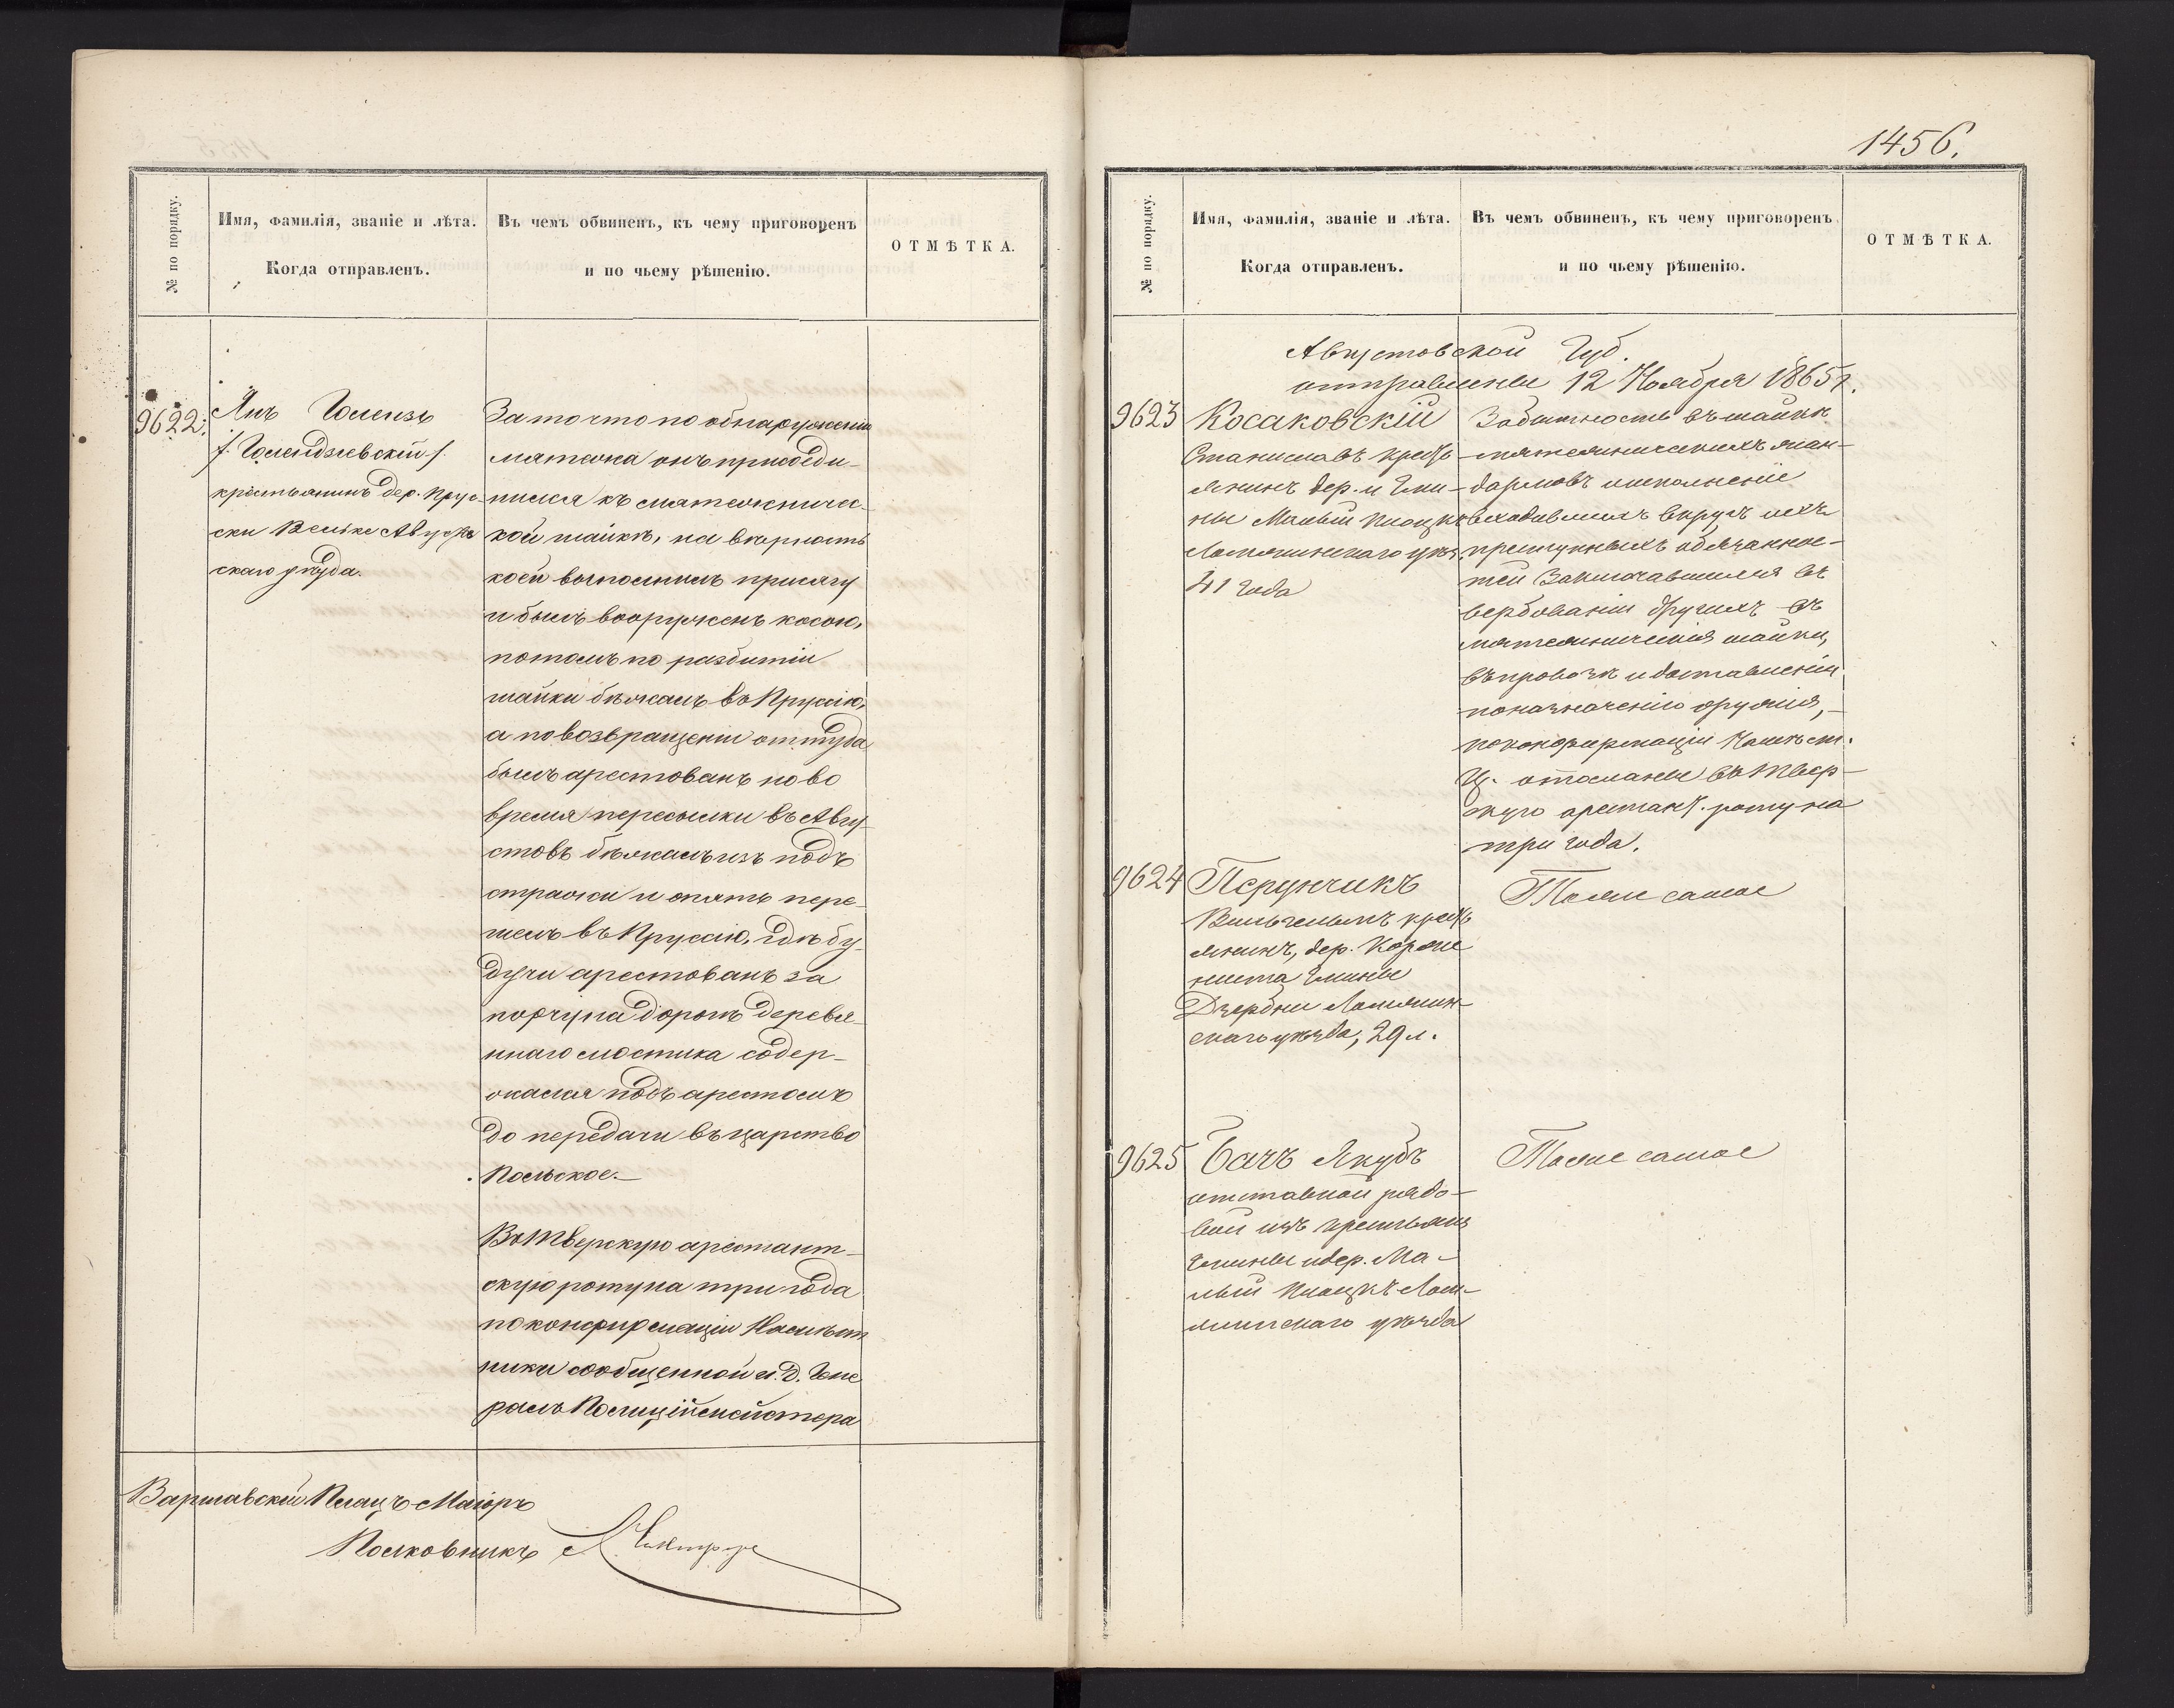 № по порядку.
Имя, фамилія, званіе и лѣта.
Когда отправленъ.
Въ чемъ обвиненъ, къ чему приговоренъ
и по чьему рѣшенію.
ОТМѢТКА.
9622.
Янъ Голензъ
/. Голендзевскій /.
крестьянинъ дер. Прус-
ски Вельке Августов
скаго уѣзда.
За то что по обнаруженіи
мятежа онъ присоеди-
нился къ мятежничес-
кой шайкѣ, на вѣрность
коей выполнилъ присягу
и былъ вооруженъ косою,
потомъ по разбитіи
шайки бѣжалъ въ Пруссію,
а по возвращеніи оттуда
былъ арестованъ но во
время пересылки въ Авгу-
стовъ бѣжалъ изъ подъ
стражи и опять пере-
шелъ въ Пруссію, гдѣ бу-
дучи арестованъ за
порчу на дорогѣ деревя-
ннаго мостика содер-
жался подъ арестомъ
до передачи въ царство
Польское.—
Въ Тверскую арестант-
скую роту на три года
по конфирмаціи Намѣст
ника сообщенной и. д. Гене
ралъ Полиціймейстера
Варшавскій Плацъ-Маіоръ
Полковникъ
1456.
№ по порядку.
Имя, фамилія, званіе и лѣта.
Когда отправленъ.
Въ чемъ обвиненъ, къ чему приговоренъ
и по чьему рѣшенію.
ОТМѢТКА.
Августовской Губ.
отправлены 12 Ноября 1865 г.
9623
Косаковскій
Станиславъ кресть
янинъ дер. и Гми-
ны Малый Плоцкъ
Ломжинскаго уѣз.
41 года
За бытность въ шайкѣ
мятежническихъ жан-
дармовъ и исполненіе
входившихъ въ кругъ ихъ
преступныхъ обязаннос-
тей заключавшихся въ
вербованіи другихъ въ
мятежническія шайки,
въ провозѣ и доставленіи
по назначенію оружія,—
по конфирмаціи Намѣст.
Ц. отосланы въ Твер-
скую арестант. роту на
три года.
9624
Перунчикъ
Вильгельмъ кресть
янинъ, дер.
Гмины
Ломжин-
скаго уѣзда, 29 л.
Тоже самое
9625
Бачъ Якубъ
отставной рядо-
вой изъ крестьянъ
Гмины и дер. Ма-
лый Плоцкъ Лом-
жинскаго уѣзда
Тоже самое